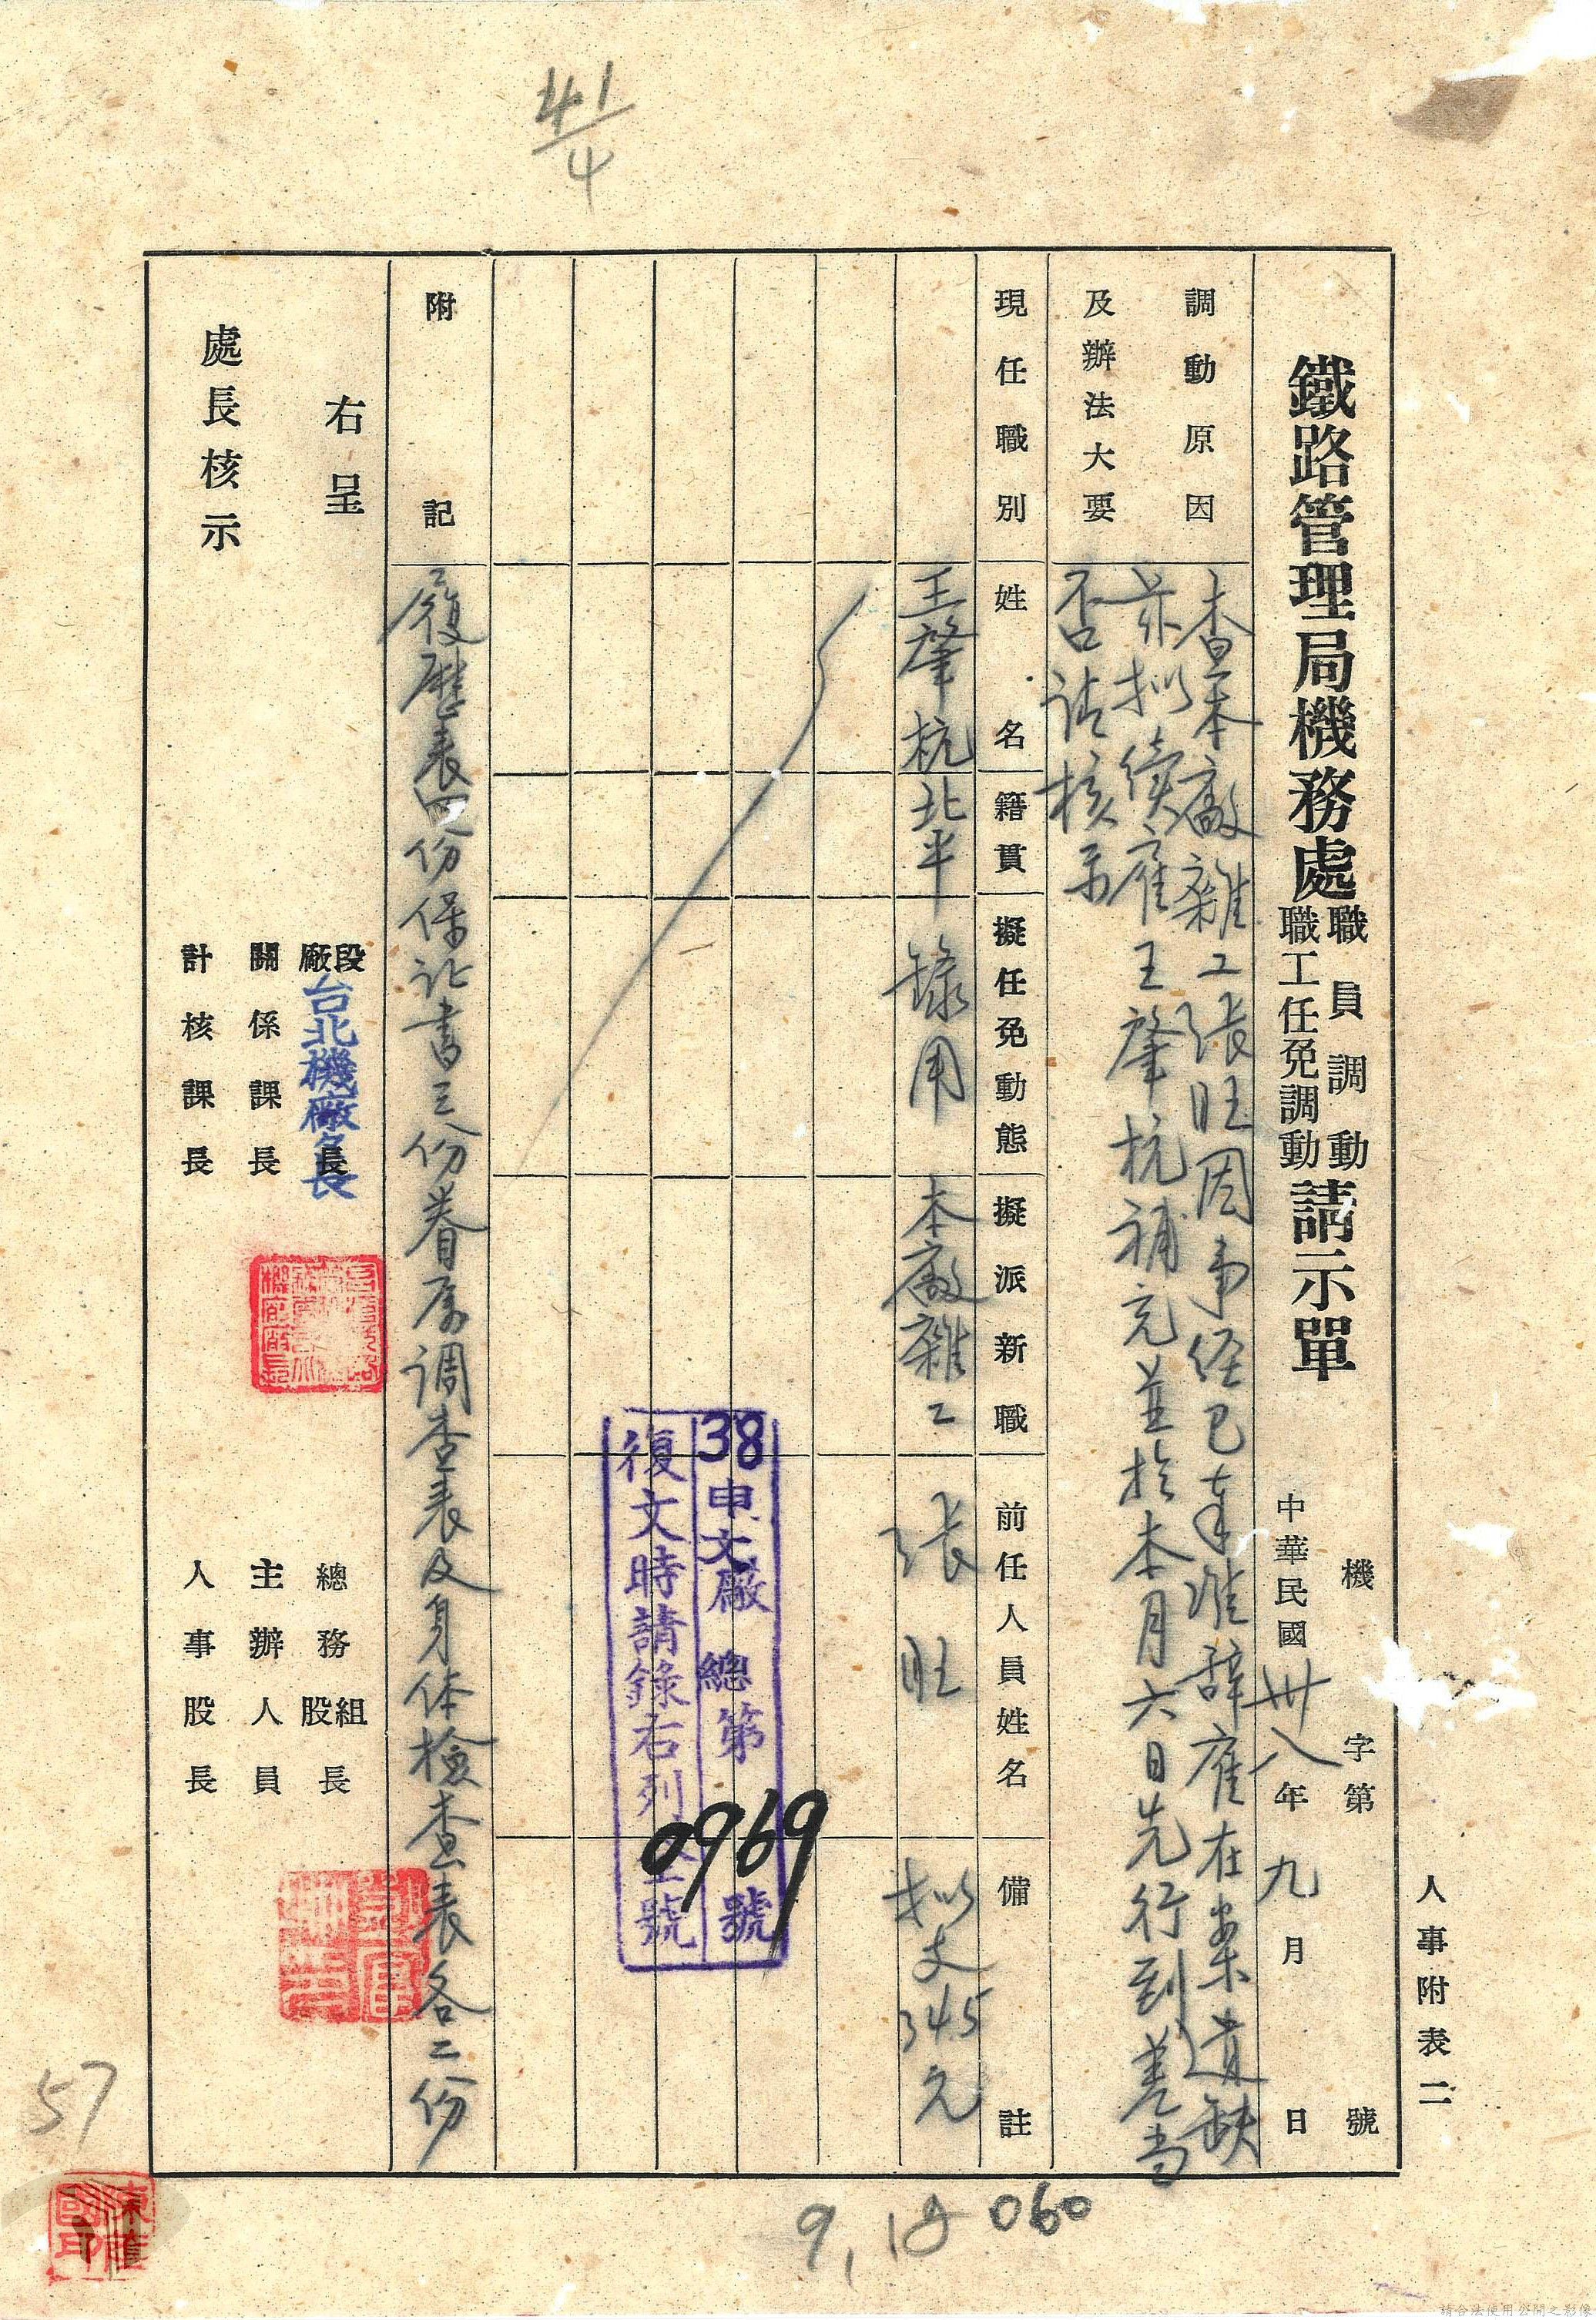 41/4
人事附表二
機 字第 號
鐵路管理局機務處職員調動職工任免調動請示單
中華民國卅八年九月 日
調動原因
及辦法大要
查本廠雜工張旺因事經已奉准辭雇在案遺缺
茲拟續雇王肇杭補充並於本月六日先行到差当
否請核示
現任職別
姓名
籍貫
擬任免動態
擬派新職
前任人員姓名
備註
王肇杭
北平
錄用
本廠雜工
張旺
拟支345元
38申文廠總第0969號
復文時請錄右列文號
附記
履歷表四份保证書三份眷屬调查表及身体檢查表各二份
右呈
處長核示
段廠長
台北機廠長
關係課長
計核課長
總務組股長
主辦人員
人事股長
57
9,15
060
請合法使用公開之影像